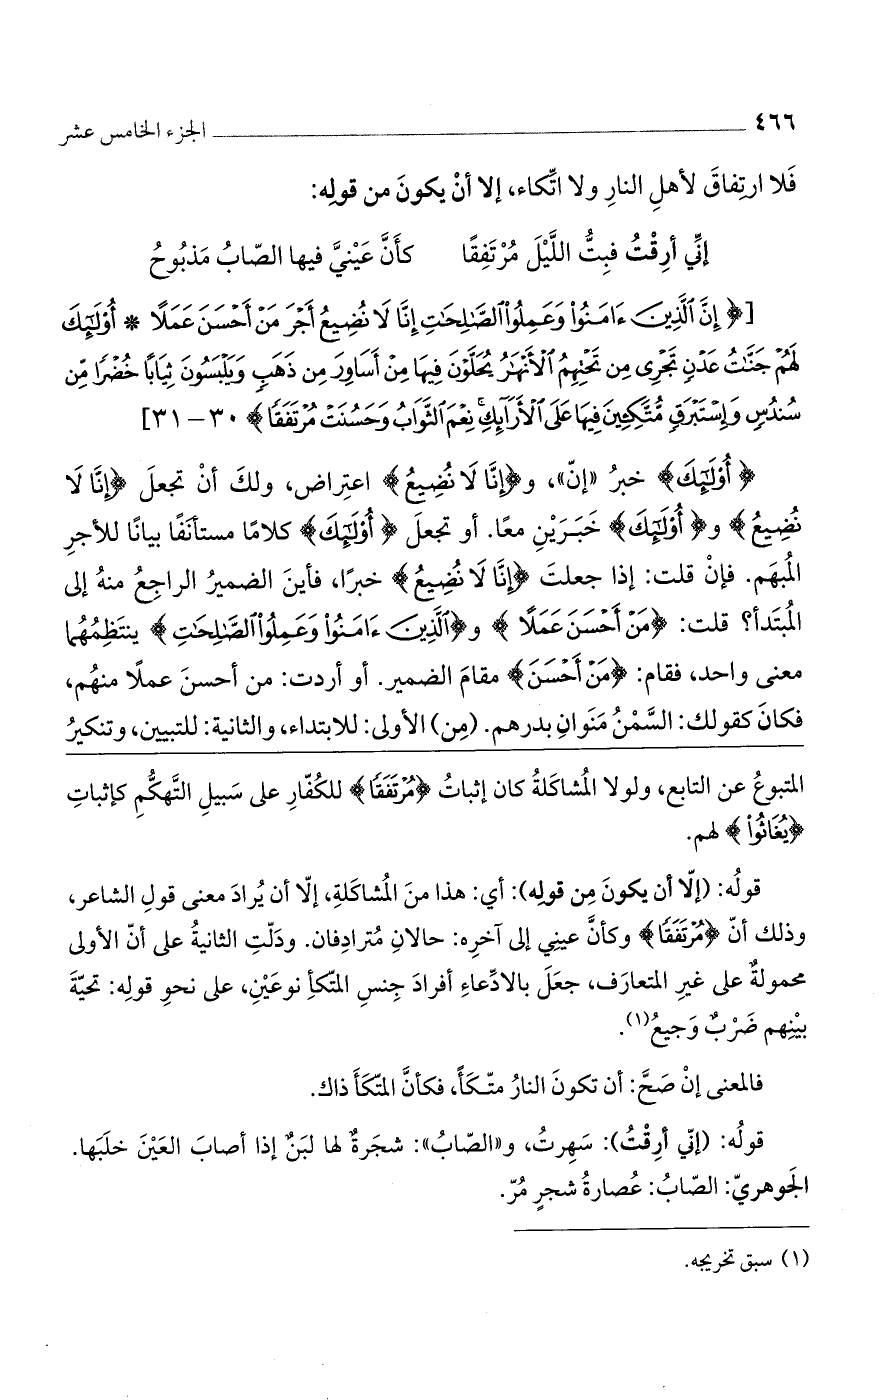 ٤٦٦ الجزء الخامس عشر
فَلا ارتِفاقَ لأهلِ النارِ ولا اتِّكاء، إلا أنْ يكونَ من قولِه:
إنِّي أَرِقْتُ فبِتُّ اللَّيْلَ مُرْتَفِقًا كأنَّ عَيْنيَّ فيها الصّابُ مَذبُوحُ
[﴿إِنَّ ٱلَّذِينَ ءَامَنُوا۟ وَعَمِلُوا۟ ٱلصَّٰلِحَٰتِ إِنَّا لَا نُضِيعُ أَجْرَ مَنْ أَحْسَنَ عَمَلًا * أُو۟لَٰٓئِكَ
لَهُمْ جَنَّٰتُ عَدْنٍ تَجْرِى مِن تَحْتِهِمُ ٱلْأَنْهَٰرُ يُحَلَّوْنَ فِيهَا مِنْ أَسَاوِرَ مِن ذَهَبٍ وَيَلْبَسُونَ ثِيَابًا خُضْرًا مِّن
سُندُسٍ وَإِسْتَبْرَقٍ مُّتَّكِـِٔينَ فِيهَا عَلَى ٱلْأَرَآئِكِ ۚ نِعْمَ ٱلثَّوَابُ وَحَسُنَتْ مُرْتَفَقًا﴾ ٣٠ – ٣١]
﴿أُو۟لَٰٓئِكَ﴾ خبرُ «إنّ»، و﴿إِنَّا لَا نُضِيعُ﴾ اعتِراض، ولكَ أنْ تجعلَ ﴿إِنَّا لَا
نُضِيعُ﴾ و﴿أُو۟لَٰٓئِكَ﴾ خَبَرَيْنِ معًا. أو تجعلَ ﴿أُو۟لَٰٓئِكَ﴾ كلامًا مستأنَفًا بيانًا للأجرِ
المُبهَم. فإنْ قلت: إذا جعلتَ ﴿إِنَّا لَا نُضِيعُ﴾ خبرًا، فأينَ الضميرُ الراجعُ منهُ إلى
المُبتَدأ؟ قلت: ﴿مَنْ أَحْسَنَ عَمَلًا﴾ و﴿ٱلَّذِينَ ءَامَنُوا۟ وَعَمِلُوا۟ ٱلصَّٰلِحَٰتِ﴾ ينتَظِمُهُما
معنى واحد، فقام: ﴿مَنْ أَحْسَنَ﴾ مقامَ الضمير. أو أردت: من أحسنَ عملًا منهُم،
فكانَ كقولك: السَّمْنُ مَنَوانِ بدرهم. (مِن) الأولى: للابتداء، والثانية: للتبيين، وتنكيرُ
المتبوعُ عن التابع، ولولا المُشاكَلةُ كان إثباتُ ﴿مُرْتَفَقًا﴾ للكُفّارِ على سَبيلِ التَّهكُّمِ كإثباتِ
﴿يُغَاثُوا۟﴾ لهم.
قولُه: (إلّا أن يكونَ مِن قولِه): أي: هذا منَ المُشاكَلةِ، إلّا أن يُرادَ معنى قولِ الشاعر،
وذلك أنّ ﴿مُرْتَفَقًا﴾ وكأنَّ عينِي إلى آخرِه: حالانِ مُترادِفان. ودَلّتِ الثانيةُ على أنّ الأولى
محمولةٌ على غيرِ المتعارَف، جعَلَ بالادِّعاءِ أفرادَ جِنسِ المتّكأِ نوعَيْنِ، على نحوِ قولِه: تحيّةَ
بيْنِهم ضَرْبٌ وَجيعُ(١).
فالمعنى إنْ صَحَّ: أن تكونَ النارُ متّكَأً، فكأنَّ المتّكَأَ ذاك.
قولُه: (إنّي أرِقْتُ): سَهِرتُ، و«الصّابُ»: شجَرةٌ لها لبَنٌ إذا أصابَ العَيْنَ حلَبَها.
الجَوهريّ: الصّابُ: عُصارةُ شجرٍ مُرّ.
(١) سبق تخريجه.